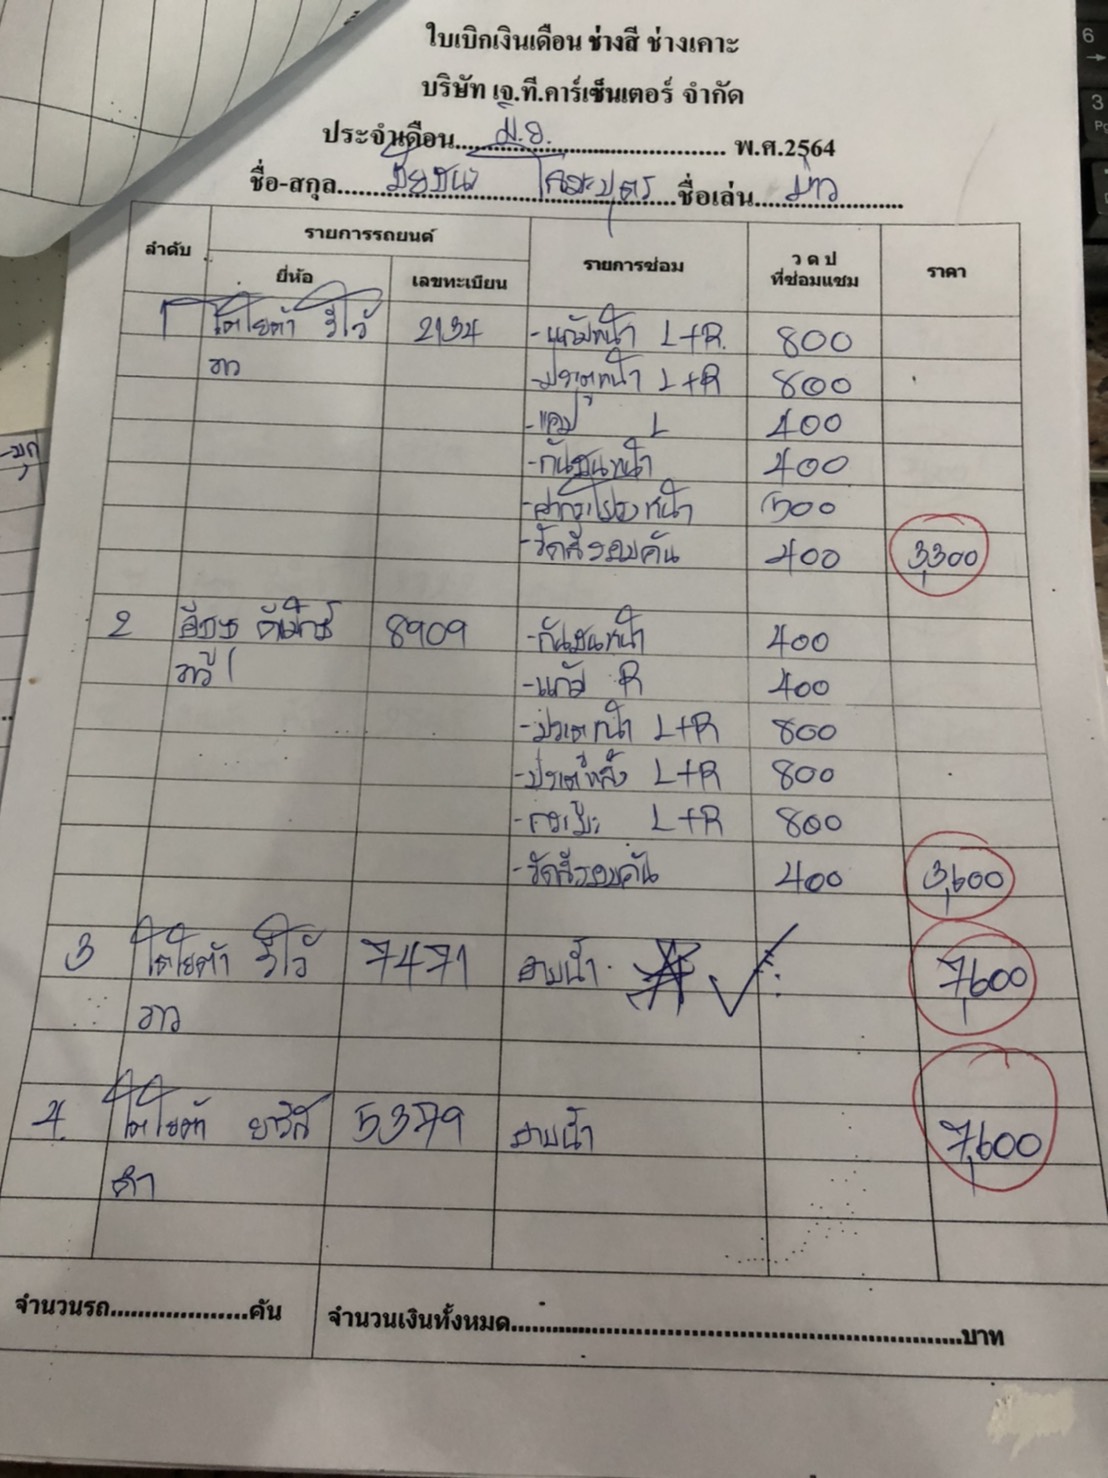 ใบเบิกเงินเดือน ช่างสี ช่างเคาะ
บริษัท เจ.ที.คาร์เซ็นเตอร์ จำกัด
ประจำเดือน.....มิ.ย......พ.ศ.2564
ชื่อ-สกุล.....ชัยชนะ.....ชื่อเล่น.....
ลำดับ รายการรถยนต์ รายการซ่อม ว ด ป ที่ซ่อมแซม ราคา
ยี่ห้อ เลขทะเบียน
1 โตโยต้า วีโว้ 2134 -แก้มหน้า L+R. 800
-ประตูหน้า L+R 800
-แคป L 400
-กันชนหน้า 400
-ฝากระโปรงหน้า 500
-ขัดสีรอบคัน 400 3,300
2 อีซูซุ ดีแม็กซ์ 8909 -กันชนหน้า 400
-แก้ม R 400
-ประตูหน้า L+R 800
-ประตูหลัง L+R 800
-กระบะ L+R 800
-ขัดสีรอบคัน 400 3,600
3 โตโยต้า วีโว้ 7471 อาบน้ำ 7,600
ขาว
4 โตโยต้า ยาริส 5379 อาบน้ำ 7,600
ดำ
จำนวนรถ....................คัน จำนวนเงินทั้งหมด....................บาท